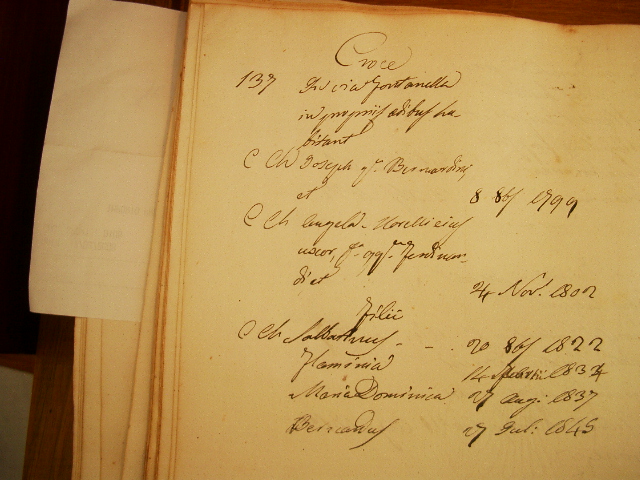 Croce
137 In via Fontanella
in propriis ædibus ha-
bitant
C Ch Joseph q. Bernardini
et 8 8bs 1799
C Ch Angela Morelli eius
uxor, f. qq. Ferdinan-
di et 24 Nov. 1802
Filii
C Ch Sallustius - - . 20 8bs 1822
Flaminia 14 1834
Maria Dominica 27 Aug: 1837
Bernardus 27 Jul: 1845